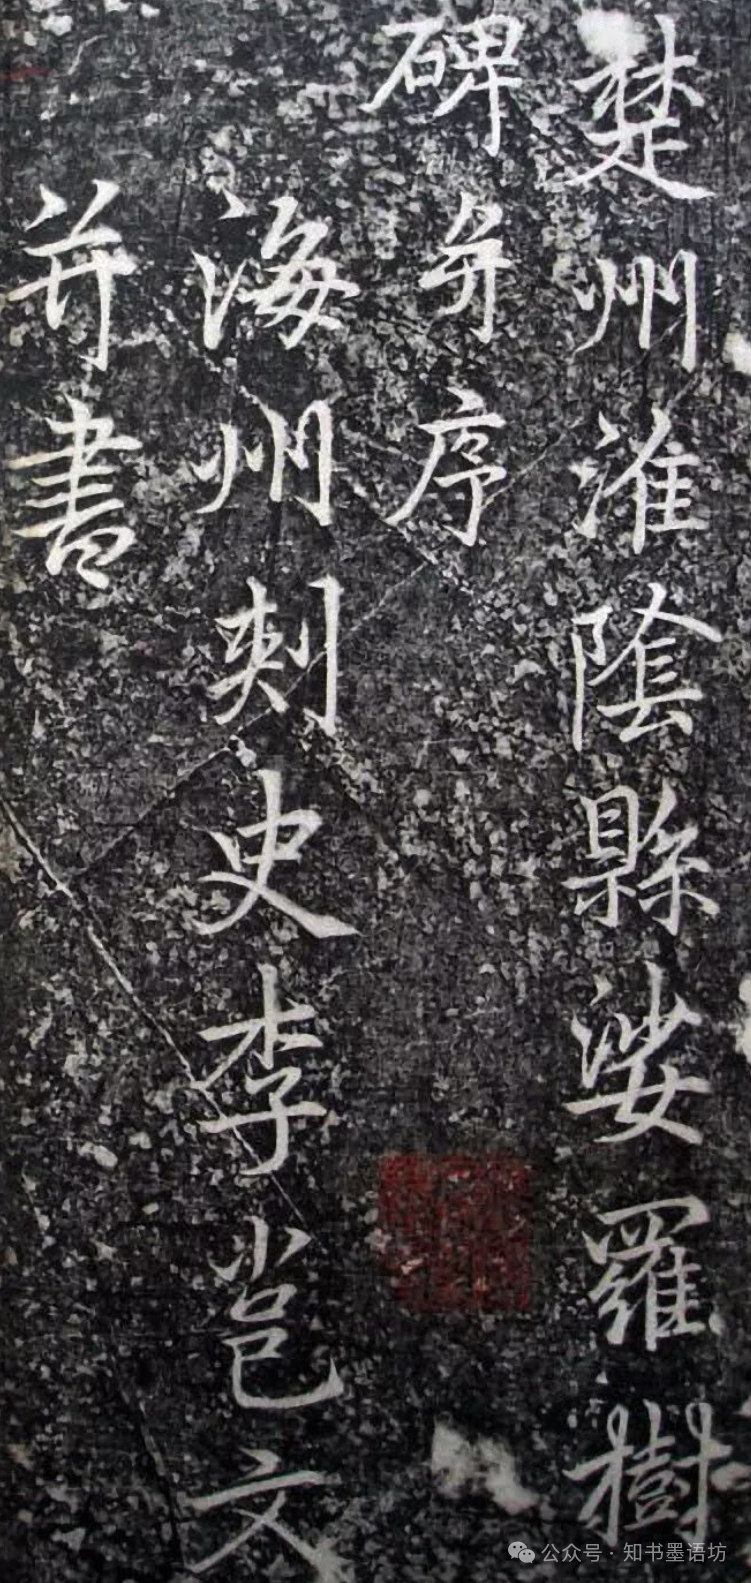 楚州淮陰縣娑羅樹
碑并序
海州刺史李邕文
并書
公众号·知书墨语坊